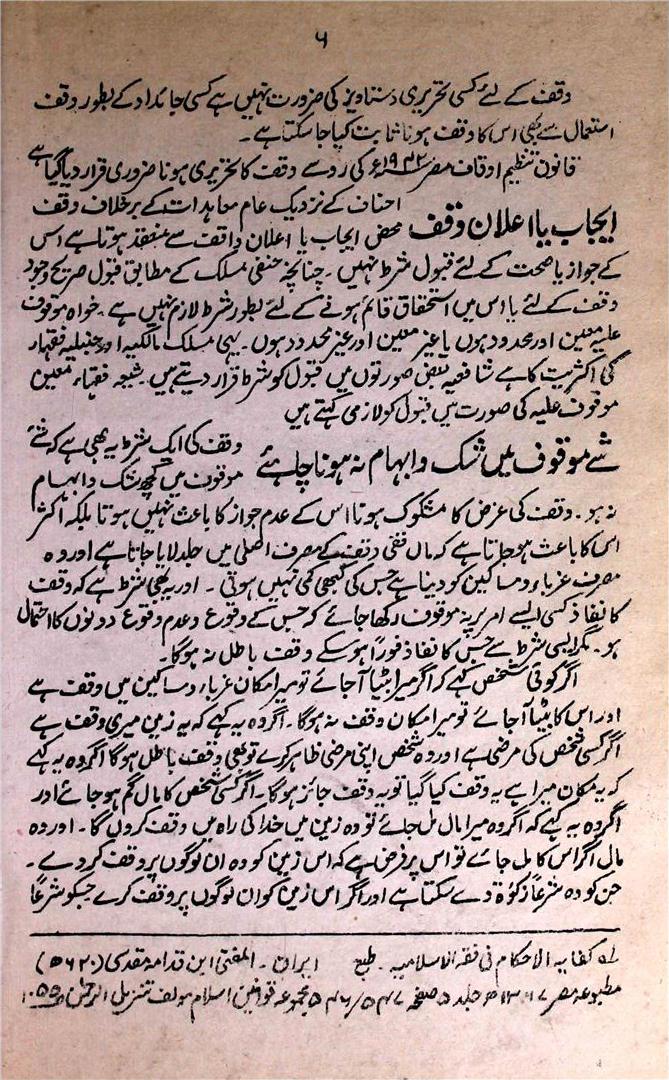 ۶
وقف کے لئے کسی تحریری دستاویز کی ضرورت نہیں ہے کسی جائداد کے بطور وقف
استعمال سے بھی اس کا وقف ہونا ثابت کیا جاسکتا ہے۔
قانون تنظیم اوقاف مصر ۱۹۴۲ء کی رو سے وقف کا تحریری ہونا ضروری قرار دیا گیا ہے
احناف کے نزدیک عام معاہدات کے برخلاف وقف
ایجاب یا اعلان وقف محض ایجاب یا اعلان واقف سے منعقد ہوتا ہے اس
کے جواز یا صحت کے لئے قبول شرط نہیں۔ چنانچہ حنفی مسلک کے مطابق قبول صریح وجود
وقف کے لئے یا اس میں استحقاق قائم ہونے کے لئے بطور شرط لازم نہیں ہے۔ خواہ موقوف
علیہ معین اور محدود ہوں یا غیر معین اور غیر محدود ہوں۔ یہی مسلک مالکیہ اور حنبلیہ فقہاء
کی اکثریت کا ہے شافعیہ بعض صورتوں میں قبول کو شرط قرار دیتے ہیں۔ شیعہ فقہاء معین
موقوف علیہ کی صورت میں قبول کو لازمی کہتے ہیں
وقف کی ایک شرط یہ بھی ہے کہ شے
شے موقوف میں شک و ابہام نہ ہونا چاہئے موقوف میں کچھ شک و ابہام
نہ ہو۔ وقف کی غرض کا مشکوک ہونا اس کے عدم جواز کا باعث نہیں ہوتا بلکہ اکثر
اس کا باعث ہو جاتا ہے کہ مال وقف کے مصرف اصلی میں جلد لایا جاتا ہے اور وہ
مصرف غرباء و مساکین کو دینا ہے جس کی کبھی کمی نہیں ہوتی۔ اور یہ بھی شرط ہے کہ وقف
کا نفاذ کسی ایسے امر پر نہ موقوف رکھا جائے کہ جس کے وقوع و عدم وقوع دونوں کا احتمال
ہو۔ مگر ایسی شرط سے جس کا نفاذ فوراً ہو سکے وقف باطل نہ ہوگا۔
اگر کوئی شخص کہے کہ اگر میرا بیٹا آجائے تو میرا مکان غرباء و مساکین میں وقف ہے
اور اس کا بیٹا آجائے تو میرا مکان وقف نہ ہوگا۔ اگر وہ یہ کہے کہ یہ زمین میری وقف ہے
اگر کسی شخص کی مرضی ہے اور وہ شخص اپنی مرضی ظاہر کرے تو بھی وقف باطل ہوگا اگر وہ یہ کہے
کہ یہ مکان میرا ہے یہ وقف کیا گیا تو یہ وقف جائز ہوگا۔ اگر کسی شخص کا مال گم ہو جائے اور
اگر وہ یہ کہے کہ اگر وہ میرا مال مل جائے تو وہ زمین میں خدا کی راہ میں وقف کروں گا۔ اور وہ
مال اگر اس کا مل جائے تو اس پر فرض ہے کہ اس زمین کو وہ ان لوگوں پر وقف کر دے۔
جن کو وہ شرعاً زکوٰۃ دے سکتا ہے اور اگر اس زمین کو ان لوگوں پر وقف کرے جسکو شرعاً
لہ کفایہ الاحکام فی فقہ الاسلامیہ۔ طبع ایران۔ المغنی ابن قدامہ مقدسی (۵۶۲۰)
مطبوعہ مصر جلد ۵ صفحہ ۵۴۶/۵۴۷ مجموعہ قوانین اسلام مولف تنزیل الرحمٰن